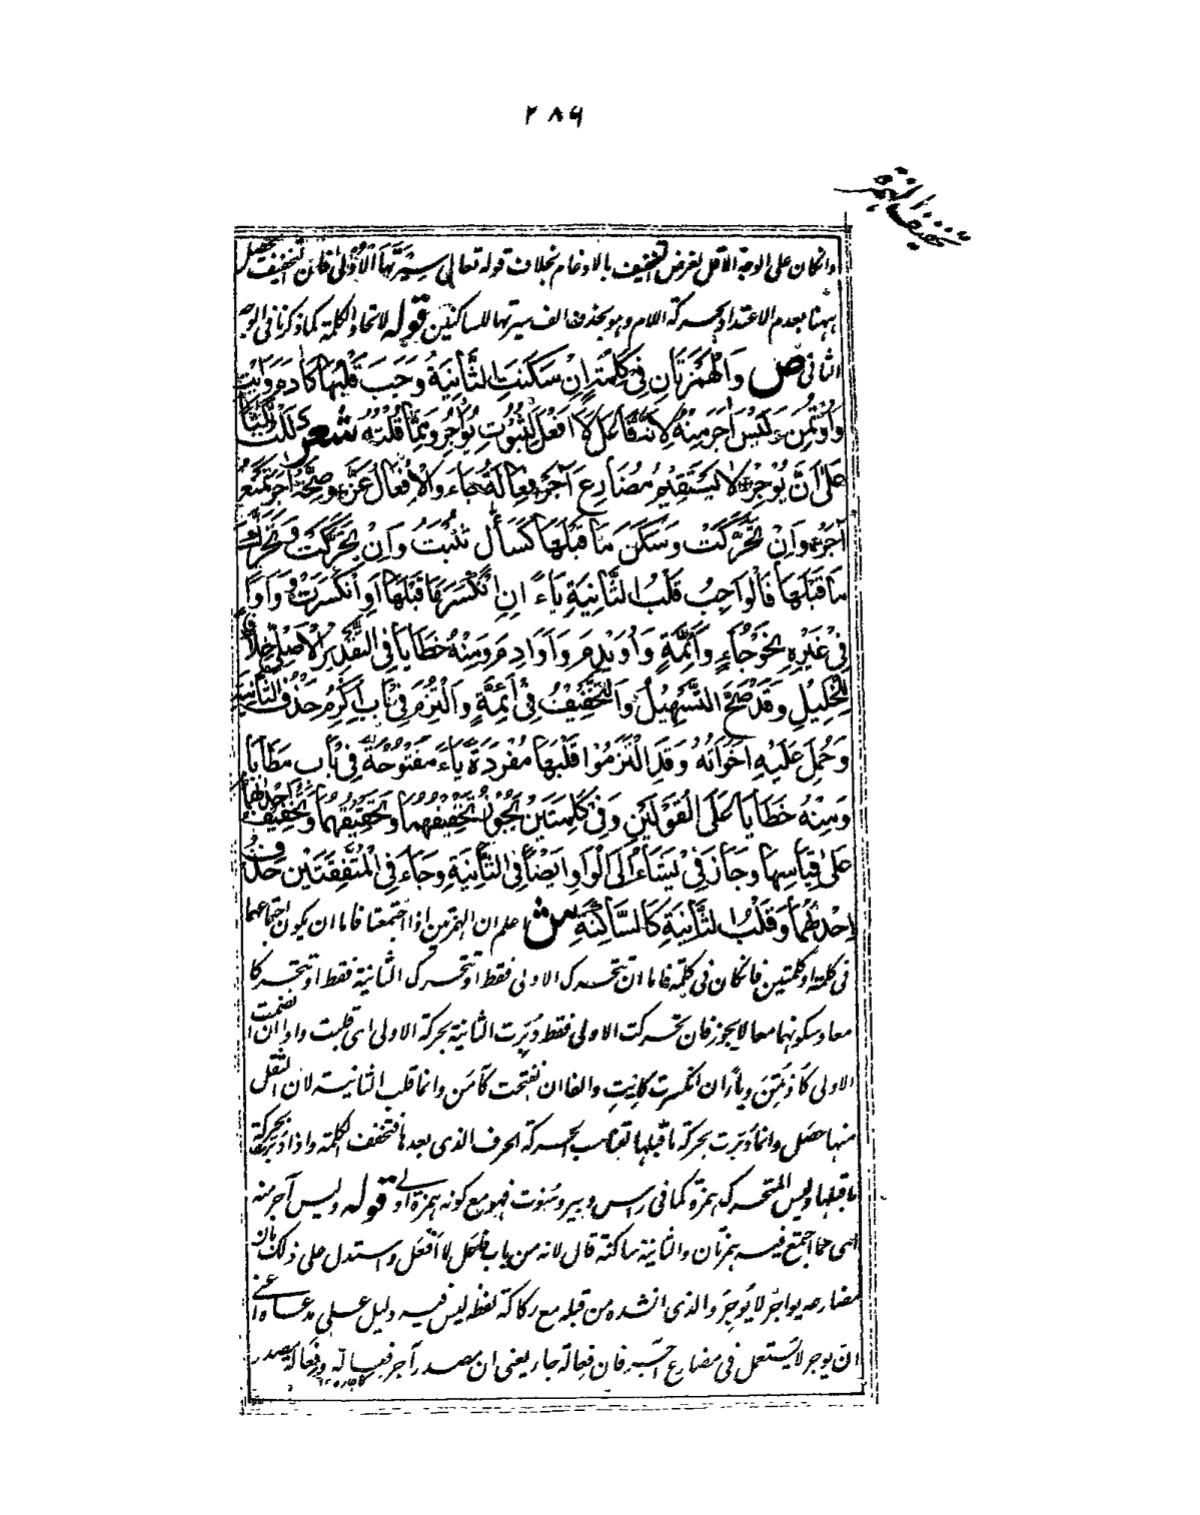 ٢٨٩
تخفيف الهمزة
وانكان على الوجه الاقل لغرض التخفيف بالادغام بخلاف قوله تعالى سِيْرَتَهَا الْأُوْلٰى فان التخفيف يحصل
ههنا بعدم الاعتداد بحركة اللام وهو بحذف الف سيرتها للساكنين قوله لاتحاد الكلمة كما ذكرنا فى الوجه
الثانى ص وَالْهَمْزَتَانِ فِىْ كَلِمَةٍ إِنْ سَكَنَتِ الثَّانِيَةُ وَجَبَ قَلْبُهَا كَاٰدَمَ وَايْتِ
وَأُوْتُمِنَ وَلَيْسَ اٰجَرَ مِنْهُ لِأَنَّهُ فَاعَلَ لَا أَفْعَلَ لِثُبُوْتِ يُؤَاجِرُ وَمِمَّا قُلْتُهُ شعر دَلَلْتُ ثَلَاثًا
عَلٰى أَنَّ يُوْجِرُ لَا يَسْتَقِيْمُ مُضَارِعَ اٰجَرَ فِعَالَةٌ جَاءَ وَالْإِفْعَالُ عَزَّ وَصِحَّةُ اٰجَرَ تَمْنَعُ
اٰجَرَ وَإِنْ تَحَرَّكَتْ وَسَكَنَ مَا قَبْلَهَا كَسَأّٰلٍ تَثْبُتُ وَإِنْ تَحَرَّكَتْ وَتَحَرَّكَ
مَا قَبْلَهَا فَالْوَاجِبُ قَلْبُ الثَّانِيَةِ يَاءً اِنِ انْكَسَرَ مَا قَبْلَهَا أَوِ انْكَسَرَتْ وَوَاوًا
فِىْ غَيْرِهِ نَحْوُ جَاءٍ وَأَئِمَّةٍ وَأُوَيْدِمَ وَأَوَادِمَ وَمِنْهُ خَطَايَا فِى التَّقْدِيْرِ الْأَصْلِىِّ خِلَافًا
لِلْخَلِيْلِ وَقَدْ صَحَّ التَّسْهِيْلُ وَالتَّحْقِيْقُ فِىْ أَئِمَّةٍ وَالْتُزِمَ فِىْ بَابِ أُكْرِمُ حَذْفُ الثَّانِيَةِ
وَحُمِلَ عَلَيْهِ أَخَوَاتُهُ وَقَدِ الْتَزَمُوْا قَلْبَهَا مُفْرَدَةً يَاءً مَفْتُوْحَةً فِىْ بَابِ مَطَايَا
وَمِنْهُ خَطَايَا عَلَى الْقَوْلَيْنِ وَفِىْ كَلِمَتَيْنِ يَجُوْزُ تَخْفِيْفُهُمَا وَتَحْقِيْقُهُمَا وَتَخْفِيْفُ إِحْدٰهُمَا
عَلٰى قِيَاسِهَا وَجَازَ فِىْ يَشَاءُ إِلَى الْوَاوِ أَيْضًا فِى الثَّانِيَةِ وَجَاءَ فِى الْمُتَّفِقَتَيْنِ حَذْفُ
إِحْدٰهُمَا وَقَلْبُ الثَّانِيَةِ كَالسَّاكِنَةِ ش اعلم ان الهمزتين اذا اجتمعتا فاما ان يكون اجتماعهما
فى كلمة او كلمتين فانكان فى كلمة فاما ان تتحرك الاولى فقط او تتحرك الثانية فقط او تتحركا
معا وسكونهما معا لا يجوز فان تحركت الاولى فقط دُبّرت الثانية بحركة الاولى اى قلبت واوا ان انضمت
الاولى كأوتمن وياءً ان انكسرت كايت والفا ان انفتحت كآمن وانما قلب الثانية لان الثقل
منها حصل وانما دبرت بحركة ما قبلها لتناسب الحركة الحرف الذى بعدها فتخفف الكلمة واذا دبرت بحركة
ما قبلها وليس المتحرك همزة كما فى راس وبير وسُوت فهو مع كونه همزة اولى قوله وليس آجر منه
اى مما اجتمع فيه همزتان والثانية ساكنة قال لانه من باب فَاعَل لا اَفْعَل واستدل على ذلك بان
مضارعه يواجر لا يُوجِر والذى انشده من قبله مع ركاكة لفظه ليس فيه دليل على مدعاه اعنى
ان يوجر لا يستعمل فى مضارع آجر فان فعالة جار يعنى ان مصدر آجر فعالة وفِعالة مصدر